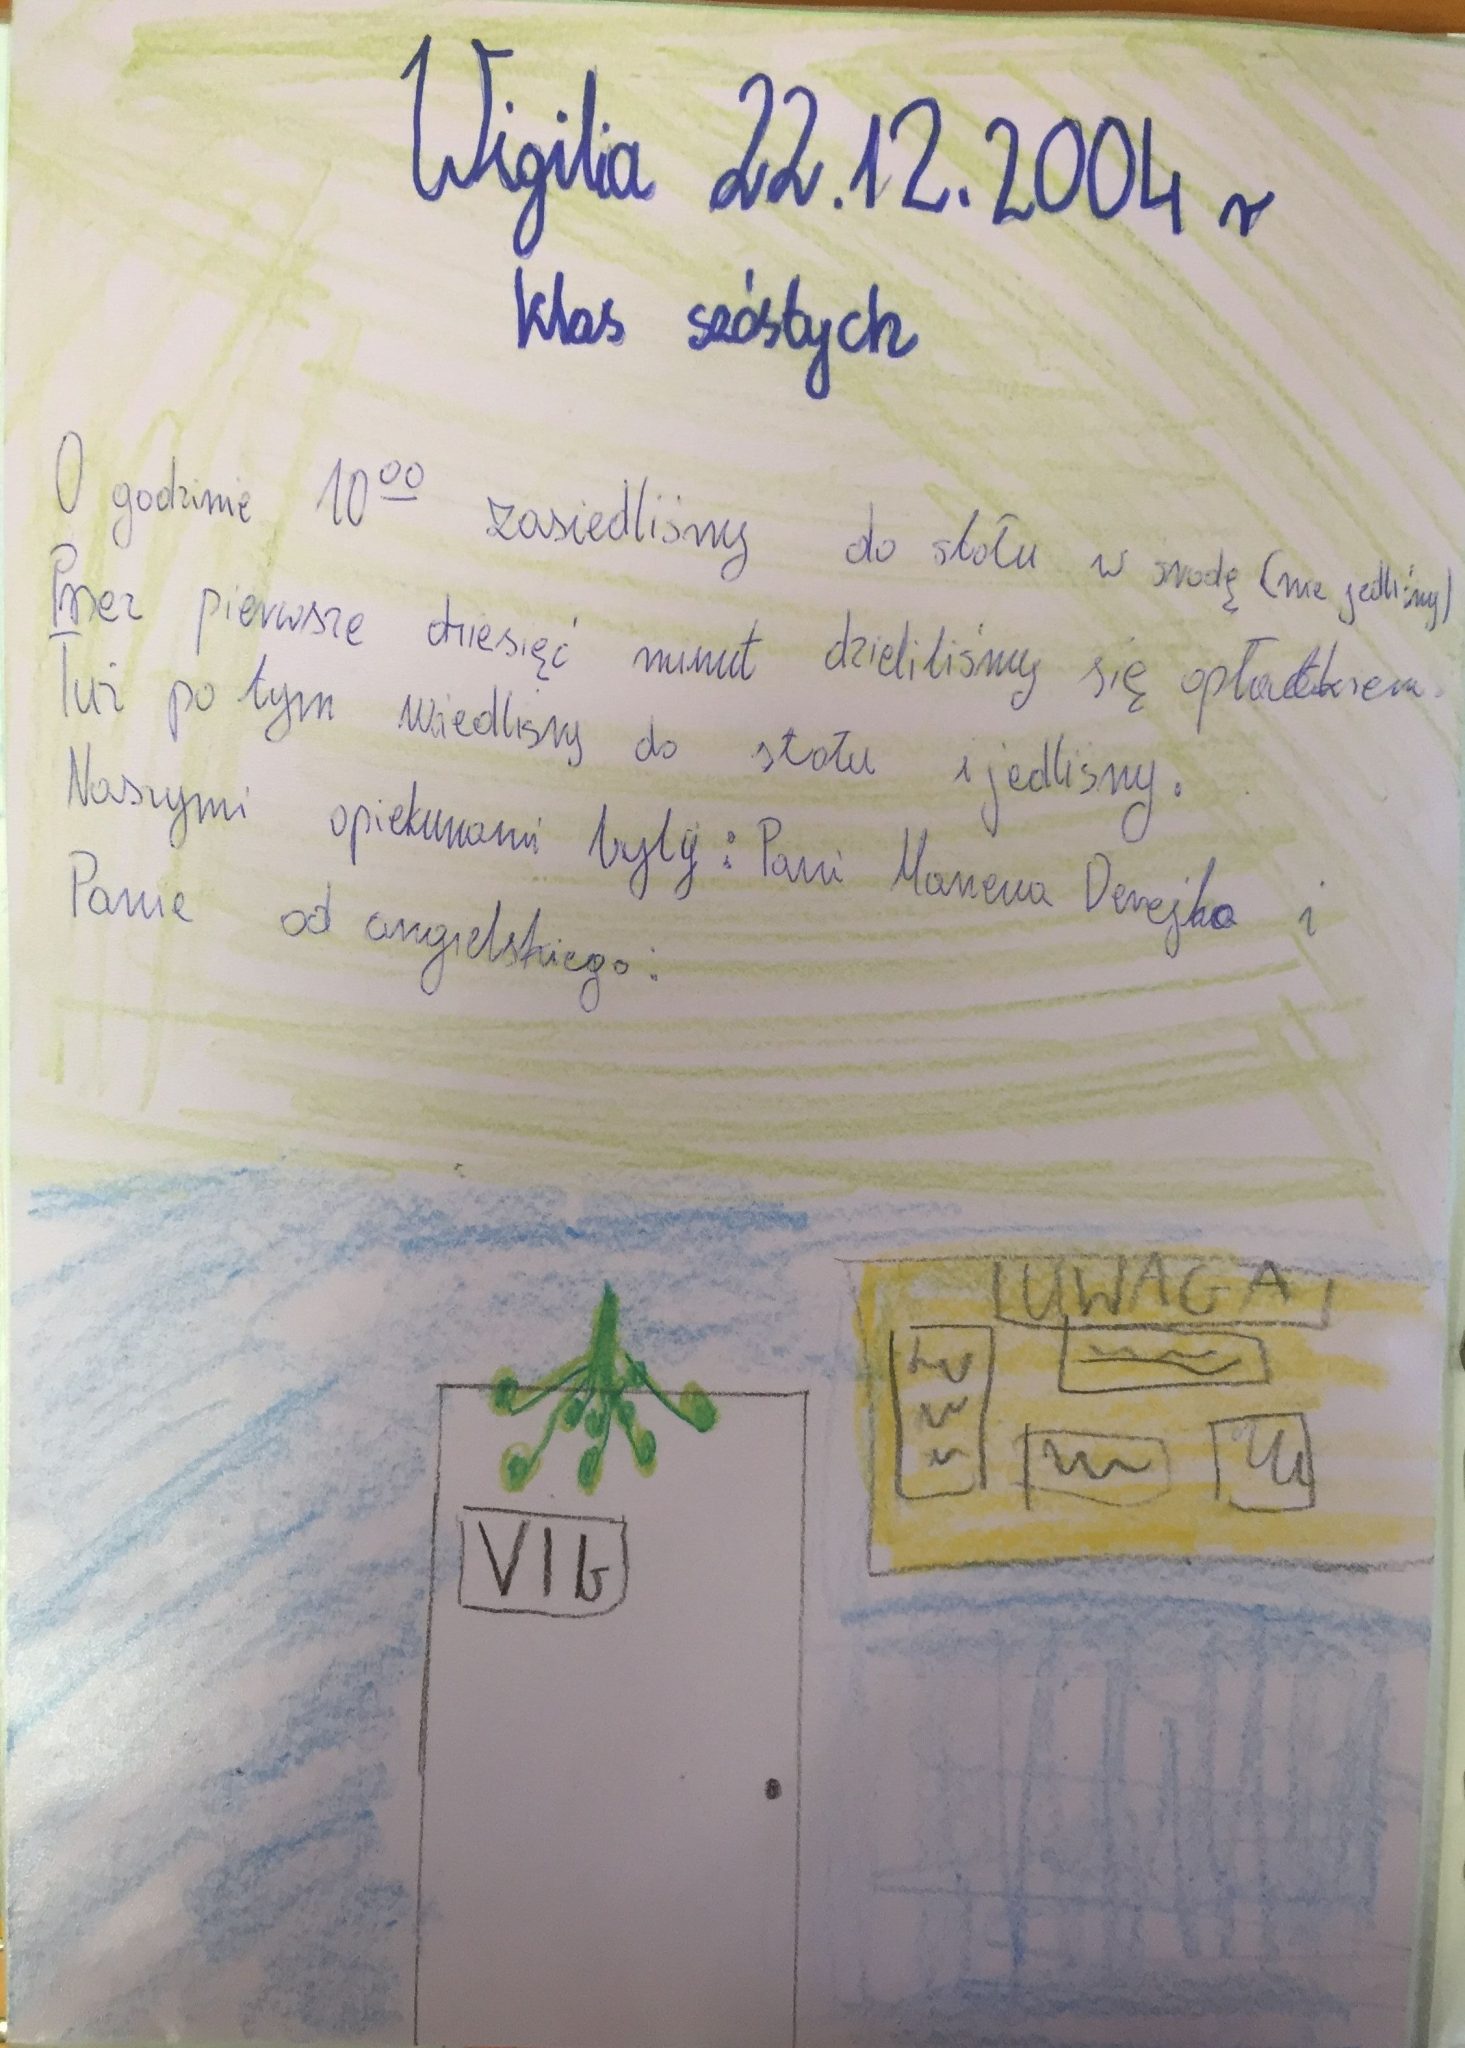 Wigilia 22.12.2004 r
klas szóstych
O godzinie 10⁰⁰ zasiedliśmy do stołu w środę (nie jedliśmy)
Przez pierwsze dziesięć minut dzieliliśmy się opłatkiem.
Tuż po tym wiedliśmy do stołu i jedliśmy.
Naszymi opiekunami były: Pani Marzena Derejko i
Panie od angielskiego:
UWAGA
VIb